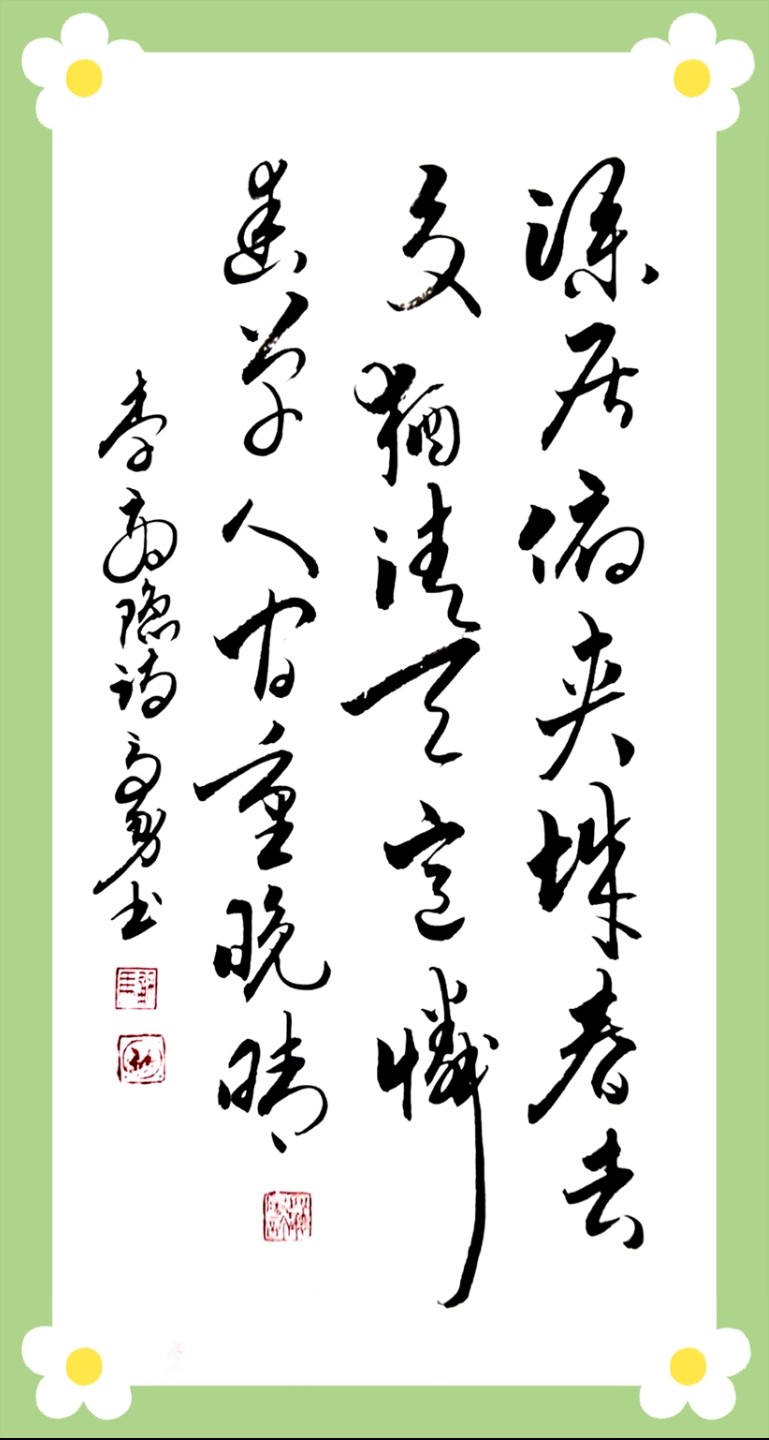 深居俯夹城春去
夏犹清天意憐
幽草人间重晚晴
李商隐诗高勇书